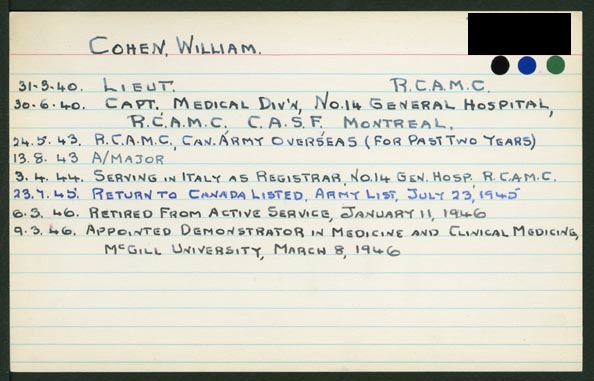 COHEN, WILLIAM.
31-5-40. LIEUT. R.C.A.M.C.
30-6-40. CAPT. MEDICAL DIV'N, NO.14 GENERAL HOSPITAL,
R.C.A.M.C. C.A.S.F. MONTREAL.
24.5.43. R.C.A.M.C., CAN. ARMY OVERSEAS (FOR PAST TWO YEARS)
13.8.43 A/MAJOR
3.4.44. SERVING IN ITALY AS REGISTRAR, NO.14 GEN. HOSP. R.C.A.M.C.
23.7.45. RETURN TO CANADA LISTED, ARMY LIST, JULY 23, 1945
6.3.46. RETIRED FROM ACTIVE SERVICE, JANUARY 11, 1946
9.3.46. APPOINTED DEMONSTRATOR IN MEDICINE AND CLINICAL MEDICINE,
MCGILL UNIVERSITY, MARCH 8, 1946